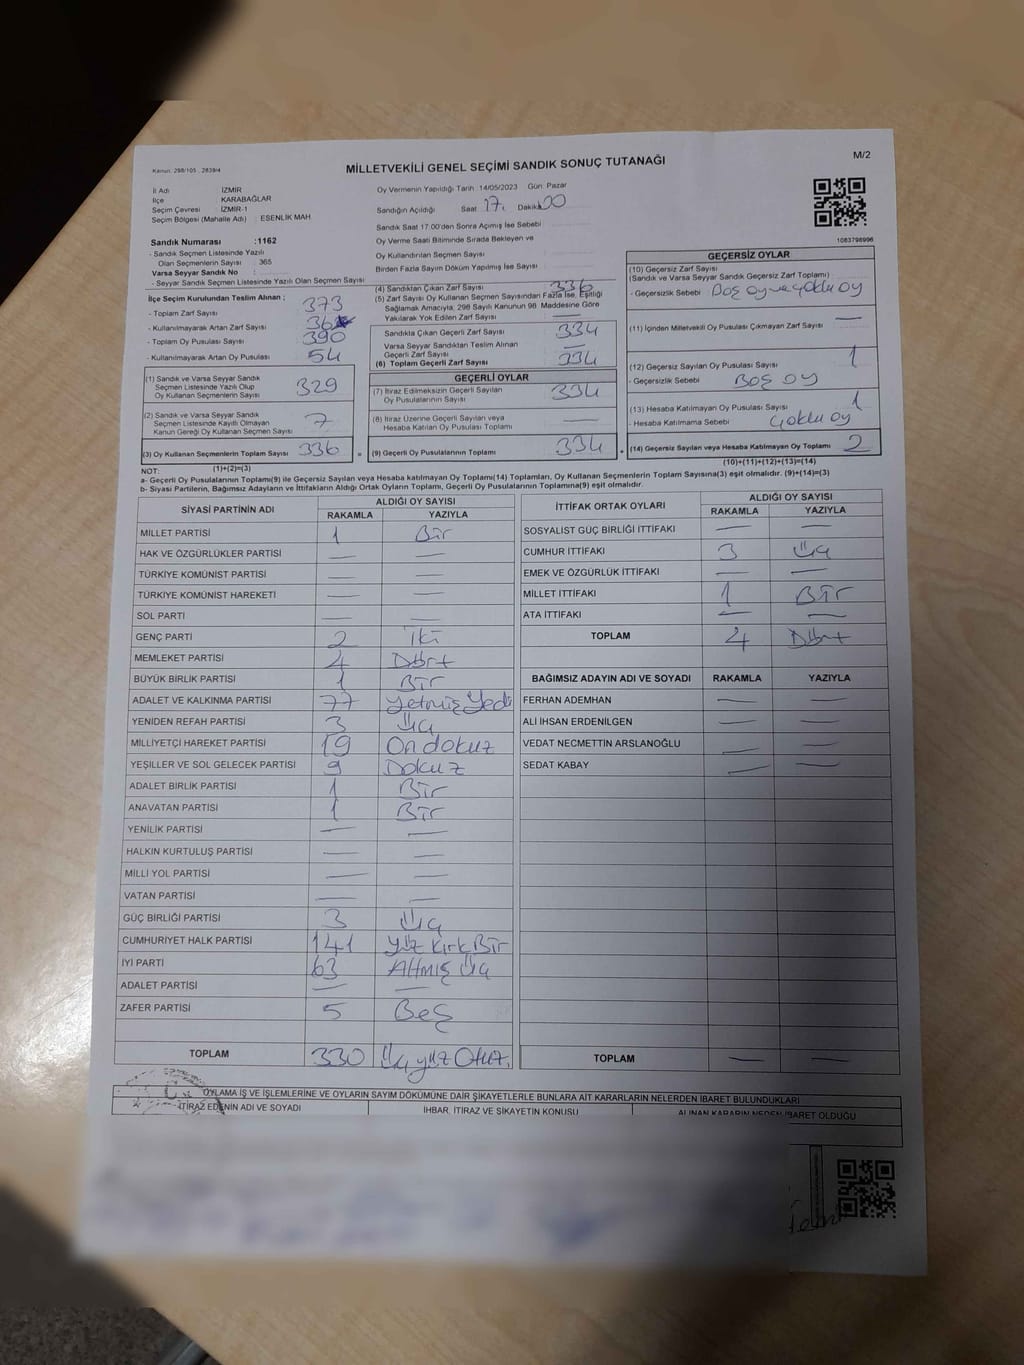 Kanun: 298/105 , 2839/4
MİLLETVEKİLİ GENEL SEÇİMİ SANDIK SONUÇ TUTANAĞI
M/2
İl Adı : İZMİR
İlçe : KARABAĞLAR
Seçim Çevresi : İZMİR-1
Seçim Bölgesi (Mahalle Adı) : ESENLİK MAH
Oy Vermenin Yapıldığı Tarih : 14/05/2023 Gün: Pazar
Sandığın Açıldığı Saat 17. Dakika 00
Sandık Saat 17:00'den Sonra Açımış İse Sebebi
Oy Verme Saati Bitiminde Sırada Bekleyen ve
Oy Kullandırılan Seçmen Sayısı
Birden Fazla Sayım Döküm Yapılmış İse Sayısı
1083798996
Sandık Numarası :1162
- Sandık Seçmen Listesinde Yazılı
Olan Seçmenlerin Sayısı : 365
Varsa Seyyar Sandık No :
- Seyyar Sandık Seçmen Listesinde Yazılı Olan Seçmen Sayısı
İlçe Seçim Kurulundan Teslim Alınan ;
- Toplam Zarf Sayısı 373
- Kullanılmayarak Artan Zarf Sayısı
- Toplam Oy Pusulası Sayısı 390
- Kullanılmayarak Artan Oy Pusulası 54
(1) Sandık ve Varsa Seyyar Sandık
Seçmen Listesinde Yazılı Olup
Oy Kullanan Seçmenlerin Sayısı 329
(2) Sandık ve Varsa Seyyar Sandık
Seçmen Listesinde Kayıtlı Olmayan
Kanun Gereği Oy Kullanan Seçmen Sayısı 7
(3) Oy Kullanan Seçmenlerin Toplam Sayısı 336
(1)+(2)=(3)
(4) Sandıktan Çıkan Zarf Sayısı 336
(5) Zarf Sayısı Oy Kullanan Seçmen Sayısından Fazla İse, Eşitliği
Sağlamak Amacıyla, 298 Sayılı Kanunun 98. Maddesine Göre
Yakılarak Yok Edilen Zarf Sayısı —
Sandıkta Çıkan Geçerli Zarf Sayısı 334
Varsa Seyyar Sandıktan Teslim Alınan
Geçerli Zarf Sayısı —
(6) Toplam Geçerli Zarf Sayısı 334
GEÇERLİ OYLAR
(7) İtiraz Edilmeksizin Geçerli Sayılan
Oy Pusulalarının Sayısı 334
(8) İtiraz Üzerine Geçerli Sayılan veya
Hesaba Katılan Oy Pusulası Toplamı —
= (9) Geçerli Oy Pusulalarının Toplamı 334
GEÇERSİZ OYLAR
(10) Geçersiz Zarf Sayısı
(Sandık ve Varsa Seyyar Sandık Geçersiz Zarf Toplamı)
- Geçersizlik Sebebi Boş oy ve çoklu oy
(11) İçinden Milletvekili Oy Pusulası Çıkmayan Zarf Sayısı —
(12) Geçersiz Sayılan Oy Pusulası Sayısı 1
- Geçersizlik Sebebi Boş oy
(13) Hesaba Katılmayan Oy Pusulası Sayısı 1
- Hesaba Katılmama Sebebi Çoklu oy
+ (14) Geçersiz Sayılan veya Hesaba Katılmayan Oy Toplamı 2
(10)+(11)+(12)+(13)=(14)
NOT:
a- Geçerli Oy Pusulalarının Toplamı(9) ile Geçersiz Sayılan veya Hesaba katılmayan Oy Toplamı(14) Toplamları, Oy Kullanan Seçmenlerin Toplam Sayısına(3) eşit olmalıdır. (9)+(14)=(3)
b- Siyasi Partilerin, Bağımsız Adayların ve İttifakların Aldığı Ortak Oyların Toplamı, Geçerli Oy Pusulalarının Toplamına(9) eşit olmalıdır.
SİYASİ PARTİNİN ADI ALDIĞI OY SAYISI
RAKAMLA YAZIYLA
MİLLET PARTİSİ 1 Bir
HAK VE ÖZGÜRLÜKLER PARTİSİ — —
TÜRKİYE KOMÜNİST PARTİSİ — —
TÜRKİYE KOMÜNİST HAREKETİ — —
SOL PARTİ — —
GENÇ PARTİ 2 İki
MEMLEKET PARTİSİ 4 Dört
BÜYÜK BİRLİK PARTİSİ 1 Bir
ADALET VE KALKINMA PARTİSİ 77 Yetmiş Yedi
YENİDEN REFAH PARTİSİ 3 Üç
MİLLİYETÇİ HAREKET PARTİSİ 19 On dokuz
YEŞİLLER VE SOL GELECEK PARTİSİ 9 Dokuz
ADALET BİRLİK PARTİSİ 1 Bir
ANAVATAN PARTİSİ 1 Bir
YENİLİK PARTİSİ — —
HALKIN KURTULUŞ PARTİSİ — —
MİLLİ YOL PARTİSİ — —
VATAN PARTİSİ — —
GÜÇ BİRLİĞİ PARTİSİ 3 Üç
CUMHURİYET HALK PARTİSİ 141 Yüz Kırk Bir
İYİ PARTİ 63 Altmış Üç
ADALET PARTİSİ — —
ZAFER PARTİSİ 5 Beş
TOPLAM 330 Üç yüz Otuz.
İTTİFAK ORTAK OYLARI ALDIĞI OY SAYISI
RAKAMLA YAZIYLA
SOSYALİST GÜÇ BİRLİĞİ İTTİFAKI — —
CUMHUR İTTİFAKI 3 Üç
EMEK VE ÖZGÜRLÜK İTTİFAKI — —
MİLLET İTTİFAKI 1 Bir
ATA İTTİFAKI — —
TOPLAM 4 Dört
BAĞIMSIZ ADAYIN ADI VE SOYADI RAKAMLA YAZIYLA
FERHAN ADEMHAN — —
ALİ İHSAN ERDENİLGEN — —
VEDAT NECMETTİN ARSLANOĞLU — —
SEDAT KABAY — —
TOPLAM — —
OYLAMA İŞ VE İŞLEMLERİNE VE OYLARIN SAYIM DÖKÜMÜNE DAİR ŞİKAYETLERLE BUNLARA AİT KARARLARIN NELERDEN İBARET BULUNDUKLARI
İTİRAZ EDENİN ADI VE SOYADI İHBAR, İTİRAZ VE ŞİKAYETİN KONUSU ALINAN KARARIN NEDEN İBARET OLDUĞU